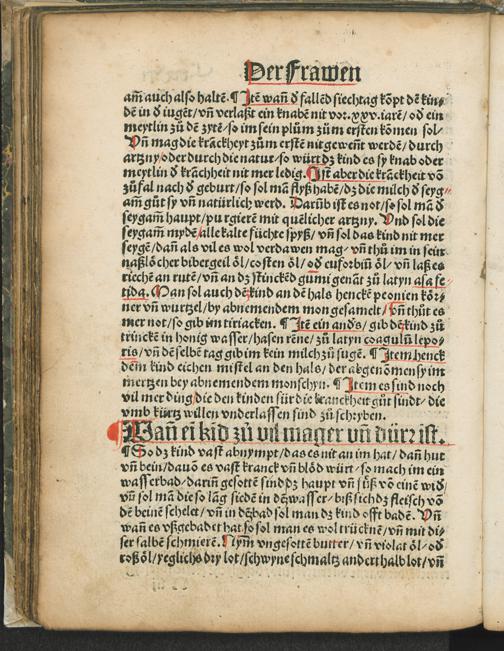 Der Frawen
am̄ auch also haltē. ¶ Itē wan̄ ď fallēd siechtag kōpt dē kin⸗
dē in ď iugēt/ vn̄ verlaßt ein knabē nit vor .xxv. iarē/ oď ein
meytlin zů dē zytē/ so im sein plům zům ersten kōmen sol⸗
Vn̄ mag die krāckheyt zům erstē nit gewent werdē/ durch
artzny/ oder durch die natur/ so würt dz kind es sy knab oder
meytlin ď krāckheit nit mer ledig. Ist aber die krāckheit vō
zůfal nach ď geburt/ so sol mā flyß habē/ dz die milch ď seyg⸗
am̄ gůt sy vn̄ natürlich werd. Darūb ist es not/ so sol mā ď
seygam̄ haupt/ purgierē mit quelicher artzny. Vnd sol die
seygam̄ mydē/ alle kalte füchte spyß/ vn̄ sol das kind nit mer
seygē/ dan̄ als vil es wol verdawen mag⸗ vn̄ thů im in sein
naßlöcher bibergeil öl/ costen öl/ oď euforbiū öl⸗ vn̄ laß es
riechē an rutē/ vn̄ an dz stinckēd gumi genāt zů latyn asa fe⸗
tida. Man sol auch dē kind an dē hals henckē peonien kör⸗
ner vn̄ wurtzel/ by abnemendem mon gesamelt/ vn̄ thůt es
mer not/ so gib im tiriacken. ¶ Itē ein anďs/ gib dē kind zů
trinckē in honig wasser/ hasen rēne/ zů latyn coagulū lepo⸗
ris/ vn̄ dē selbē tag gib im kein milch zů sugē. ¶ Item henck
dem kind eichen mistel an den hals/ der abgenōmen sy im
mertzen bey abnemendem monschyn. ¶ Item es sind noch
vil mer ding/ die den kinden für die kranckheit gůt sindt⸗ die
vmb kürtz willen vnderlassen sind zů schryben.
Wan̄ ei kīd zů vil mager vn̄ dürr ist.
¶ So dz kind vast abnympt/ das es nit an im hat/ dan̄ hut
vn̄ bein/ dauō es vast kranck vn̄ blöd würt⸗ so mach im ein
wasserbad/ darin̄ gesottē sind dz haupt vn̄ füß vō einē wiď/
vn̄ sol mā die so lāg siedē in dē wasser⸗ biß sich dz fleisch vō
dē beinē schelet/ vn̄ in dē bad sol man dz kind offt badē. Vn̄
wan̄ es vßgebadet hat so sol man es wol trücknē/ vn̄ mit di⸗
ser salbē schmierē. Nym̄ vngesottē butter/ vn̄ violat öl⸗ oď
roß öl/ yeglichs dry lot/ schwyne schmaltz anderthalb lot/ vn̄